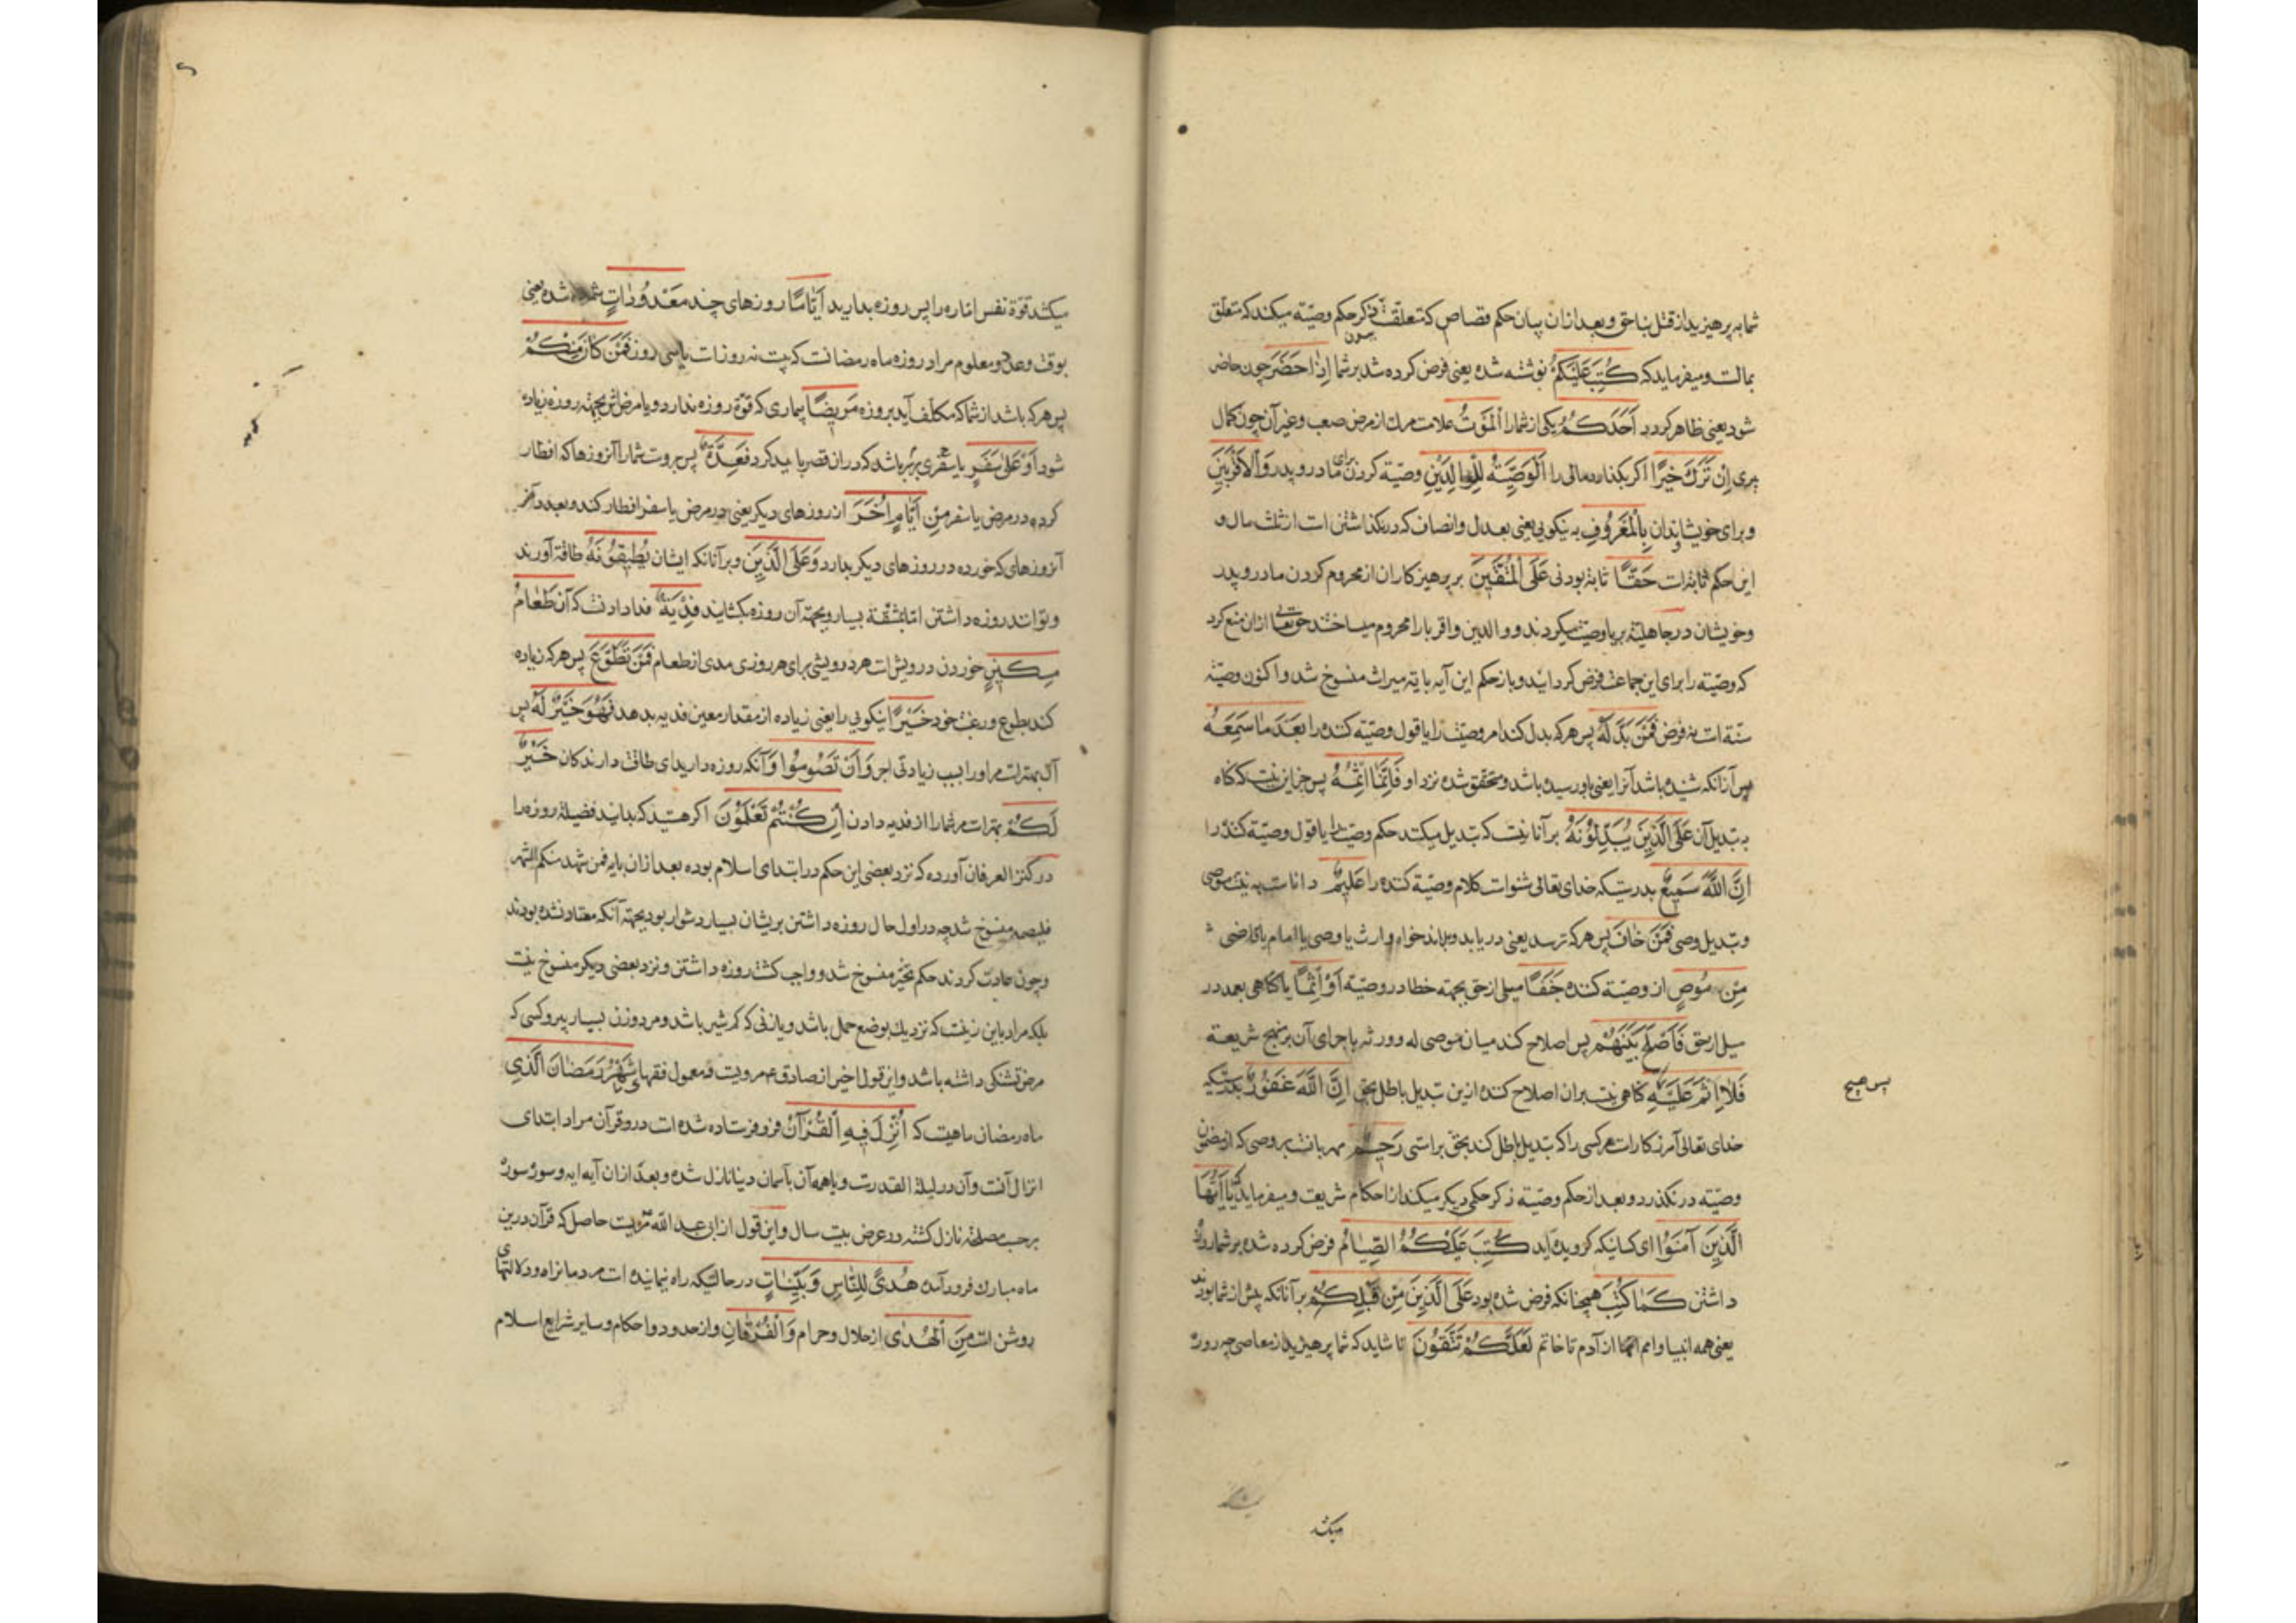 شما به پرهیزید از قتل بناحق و بعد از آن بیان حکم قصاص که متعلقست ذکر حکم وصیّة میکند که متعلق
بمالست و میفرماید که كُتِبَ عَلَيْكُمُ نوشته شده یعنی فرض کرده شد بر شما اِذا حَضَرَ چون حاضر
شود یعنی ظاهر کردد اَحَدَكُمُ یکی از شما را الْمَوْتُ علامت مرك از مرض صعب و غیر آن چون کمال
پیری اِنْ تَرَكَ خَيْرًا اکر بکذارد مالی را اَلْوَصِيَّةُ لِلْوالِدَيْنِ وصیّة کردن برای مادر و پدر وَالْاَقْرَبينَ
و برای خویشاوندان بِالْمَعْرُوفِ به نیکویی یعنی بعدل و انصاف که در نکذاشتن است از ثلث مال و
این حکم ثابتست حَقًّا ثابت بودنی عَلَى الْمُتَّقينَ بر پرهیزکاران از محروم کردن مادر و پدر
و خویشان در جاهلیّة بریا وصیّت میکردند و والدین و اقربا را محروم میساختند حق تعالی از آن منع کرد
که وصیّته را برای این جماعت فرض کردانید و باز حکم این آیه بآیته میراث منسوخ شد و اکنون وصیّته
سنّة است نه فرض فَمَنْ بَدَّلَهُ پس هر که بدل کند امر وصیّت را یا قول وصیّة کننده را بَعْدَ ما سَمِعَهُ
پس از آنکه شنیده باشد آنرا یعنی باو رسیده باشد و محقق شده نزد او فَاِنَّما اِثْمُهُ پس جز این نیست که کناه
به تبدیل آن عَلَى الَّذينَ يُبَدِّلُونَهُ بر آنانیست که تبدیل میکنند حکم وصیّت را یا قول وصیّة کننده را
اِنَّ اللّٰهَ سَميعٌ بدرستیکه خدای تعالی شنواست کلام وصیّة کننده را عَليمٌ داناست به نیّت موصی
و تبدیل وصی فَمَنْ خافَ پس هر که ترسد یعنی دریابد و بداند خواه وارث یا وصی یا امام یا قاضی
مِنْ مُوصٍ از وصیّة کننده جَنَفًا میلی از حق بجهته خطا در وصیّة اَوْ اِثْمًا یا کناهی بعمد در
میل از حق فَاَصْلَحَ بَيْنَهُمْ پس اصلاح کند میان موصی له و ورثه باجرای آن بر نهج شریعة
فَلا اِثْمَ عَلَيْهِ کناهی نیست بر آن اصلاح کننده ازین تبدیل باطل بحق اِنَّ اللّٰهَ غَفُورٌ بدرستیکه
پس هیچ
خدای تعالی آمرزکار است مر کسی را که تبدیل باطل کند بحق براستی رَحيمٌ مهربانست بر وصی که از مضمون
وصیّته درنکذرد و بعد از حکم وصیّته ذکر حکمی دیکر میکند از احکام شریعت و میفرماید که يا اَيُّهَا
الَّذينَ آمَنُوا ای کسانیکه کرویده‌اید كُتِبَ عَلَيْكُمُ الصِّيامُ فرض کرده شده بر شما روزه
داشتن كَما كُتِبَ همچنانکه فرض شده بود عَلَى الَّذينَ مِنْ قَبْلِكُمْ بر آنانکه پیش از شما بودند
یعنی همه انبیا و امم از آدم تا خاتم لَعَلَّكُمْ تَتَّقُونَ تا شاید که شما پرهیزید از معاصی چه روزه
میکشد
میکشد قوّة نفس امّاره را پس روزه بدارید اَيّامًا روزهای چند مَعْدُوداتٍ شمرده شده یعنی
بوقت و عدد معلوم مراد روزه ماه رمضانست که بیست نه روزست یا سی روز فَمَنْ كانَ مِنْكُمْ
پس هر که باشد از شما که مکلّف‌اید بروزه مَريضًا بیماری که قوّة روزه ندارد و یا مرضش بجهته روزه زیاده
شود اَوْ عَلى سَفَرٍ یا سفری بر سر باشد که در آن قصر باید کرد فَعِدَّةٌ پس بروست شمار آنروزها که افطار
کرده در مرض یا سفر مِنْ اَيّامٍ اُخَرَ از روزهای دیکر یعنی در مرض یا سفر افطار کند و بعد در آخر
آنروزهای که خورده در روزهای دیکر بدارد وَعَلَى الَّذينَ و بر آنانکه ایشان يُطيقُونَهُ طاقة آورند
و توانند روزه داشتن امّا بمشقّة بسیار و بجهته آن روزه بکشایند فِدْيَةٌ فدا دادنست که آن طَعامُ
مِسْكينٍ خوردن درویش است هر درویشی برای هر روزی مدی از طعام فَمَنْ تَطَوَّعَ پس هر که زیاده
کند بطوع و رغبت خود خَيْرًا نیکویی را یعنی زیاده از مقدار معین فدیه بدهد فَهُوَ خَيْرٌ لَهُ پس
آن بهتر است مر او را بسبب زیادتی اجر وَاَنْ تَصُومُوا وآنکه روزه دارید ای طاقت دارندکان خَيْرٌ
لَكُمْ بهتر است مر شما را از فدیه دادن اِنْ كُنْتُمْ تَعْلَمُونَ اکر هستید که بدانید فضیلة روزه را
در کنز العرفان آورده که نزد بعضی این حکم در ابتدای اسلام بوده بعد از آن بآیه فمن شهد منکم الشهر
فلیصمه منسوخ شد چه در اول حال روزه داشتن بریشان بسیار دشوار بود بجهته آنکه معتاد نشده بودند
و چون عادت کردند حکم تخیّر منسوخ شد و واجب کشت روزه داشتن و نزد بعضی دیکر منسوخ نیست
بلکه مراد باین زنیست که نزدیك بوضع حمل باشد و یا زنی که کم شیر باشد و مرد و زن بسیار پیر و کسی که
مرض تشنکی داشته باشد و این قول اخیر از صادق ع مرویست و معمول فقها شَهْرُ رَمَضانَ الَّذي
ماه رمضان ماهیست که اُنْزِلَ فيهِ الْقُرْآنُ فرو فرستاده شده است درو قرآن مراد ابتدای
انزال آنست و آن در لیلة القدرست و یا همه آن بآسمان دنیا نازل شده و بعد از آن آیه آیه و سوره سوره
برحسب مصلحة نازل کشته در عرض بیست سال و این قول از ابی عبد اللّٰه مرویست حاصل که قرآن درین
ماه مبارك فرود آمده هُدًى لِلنّاسِ وَبَيِّناتٍ در حالتیکه راه نماینده است مردمانرا و دلالتهای
روشن است مِنَ الْهُدٰى از حلال و حرام وَالْفُرْقانِ و از حدود و احکام و سایر شرایع اسلام